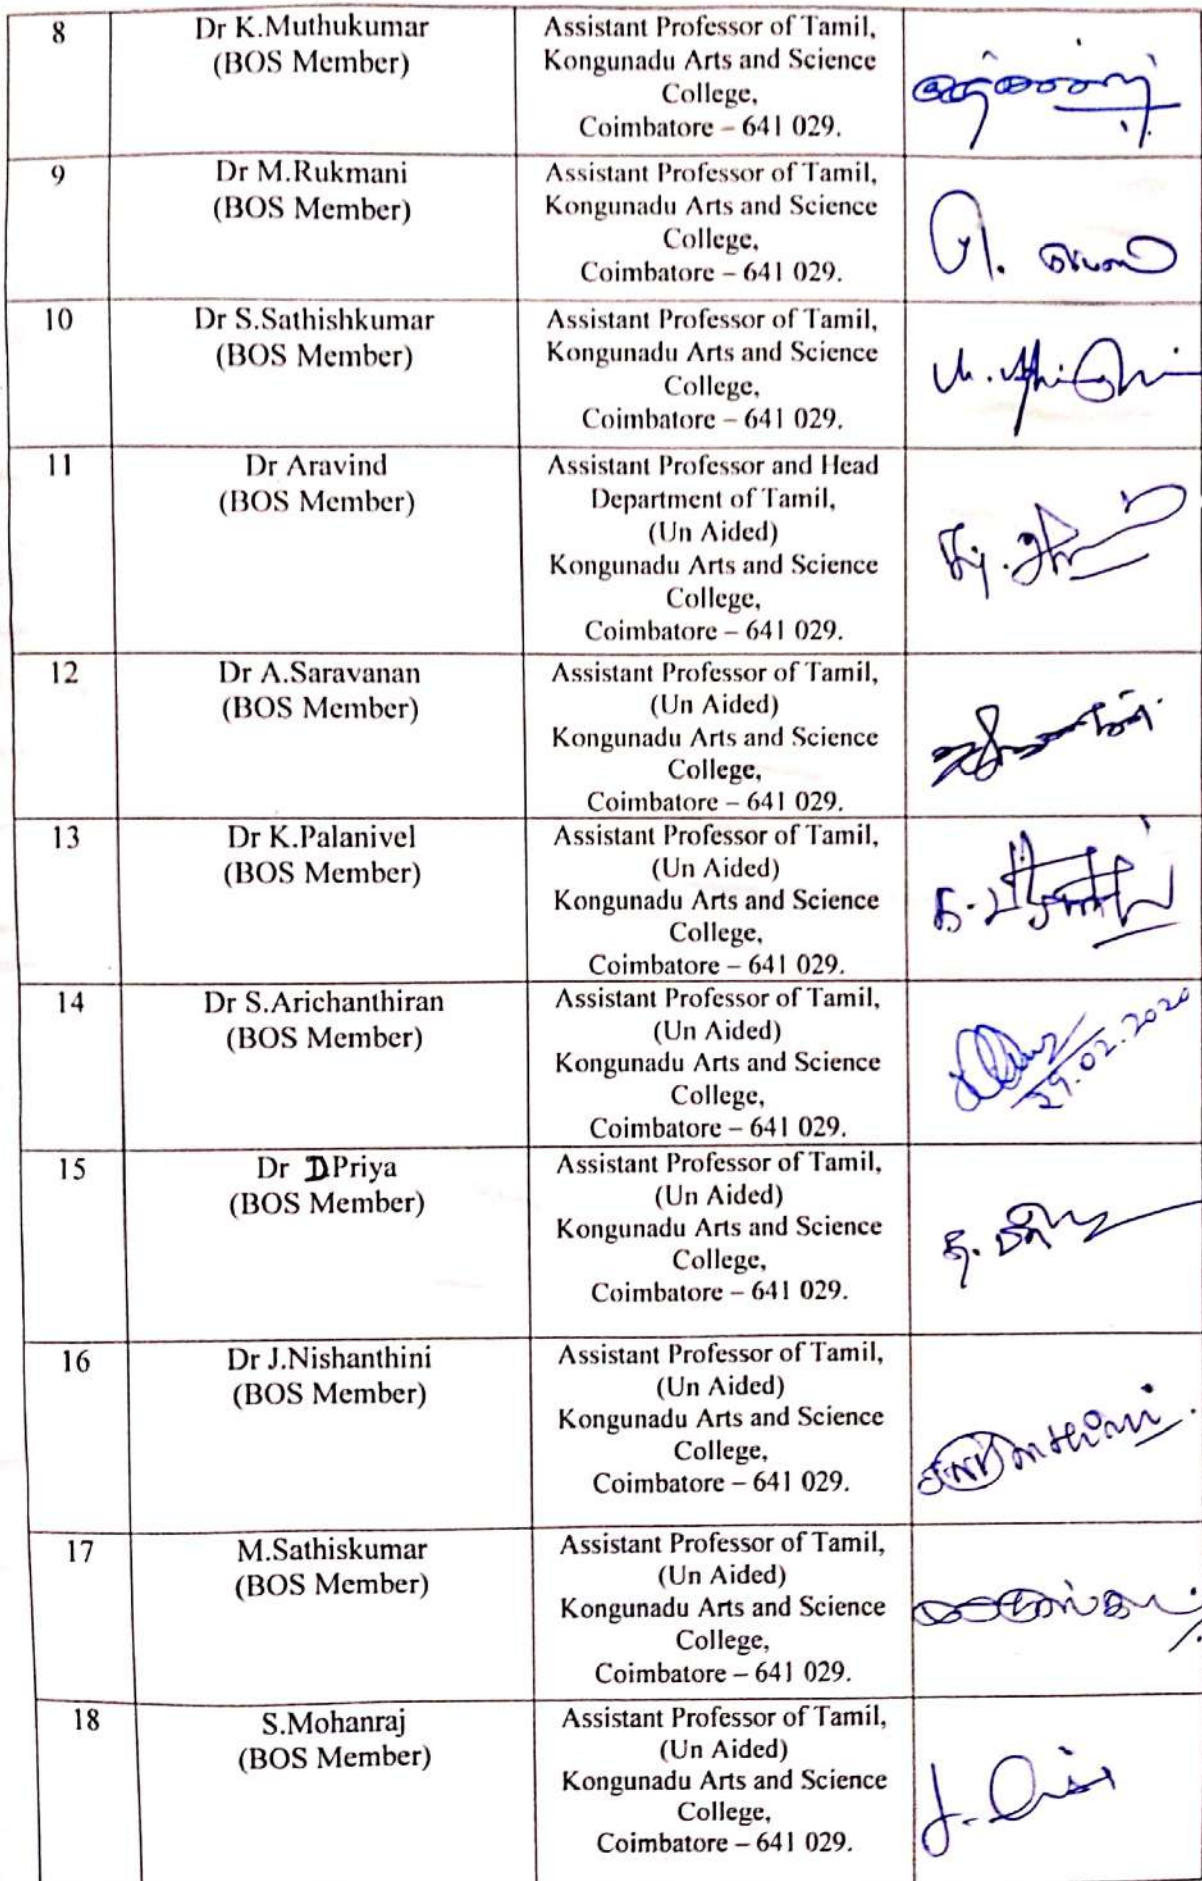 8
Dr K.Muthukumar
(BOS Member)
Assistant Professor of Tamil,
Kongunadu Arts and Science
College,
Coimbatore – 641 029.
9
Dr M.Rukmani
(BOS Member)
Assistant Professor of Tamil,
Kongunadu Arts and Science
College,
Coimbatore – 641 029.
10
Dr S.Sathishkumar
(BOS Member)
Assistant Professor of Tamil,
Kongunadu Arts and Science
College,
Coimbatore – 641 029.
11
Dr Aravind
(BOS Member)
Assistant Professor and Head
Department of Tamil,
(Un Aided)
Kongunadu Arts and Science
College,
Coimbatore – 641 029.
12
Dr A.Saravanan
(BOS Member)
Assistant Professor of Tamil,
(Un Aided)
Kongunadu Arts and Science
College,
Coimbatore – 641 029.
13
Dr K.Palanivel
(BOS Member)
Assistant Professor of Tamil,
(Un Aided)
Kongunadu Arts and Science
College,
Coimbatore – 641 029.
14
Dr S.Arichanthiran
(BOS Member)
Assistant Professor of Tamil,
(Un Aided)
Kongunadu Arts and Science
College,
Coimbatore – 641 029.
29.02.2020
15
Dr D.Priya
(BOS Member)
Assistant Professor of Tamil,
(Un Aided)
Kongunadu Arts and Science
College,
Coimbatore – 641 029.
16
Dr J.Nishanthini
(BOS Member)
Assistant Professor of Tamil,
(Un Aided)
Kongunadu Arts and Science
College,
Coimbatore – 641 029.
17
M.Sathiskumar
(BOS Member)
Assistant Professor of Tamil,
(Un Aided)
Kongunadu Arts and Science
College,
Coimbatore – 641 029.
18
S.Mohanraj
(BOS Member)
Assistant Professor of Tamil,
(Un Aided)
Kongunadu Arts and Science
College,
Coimbatore – 641 029.